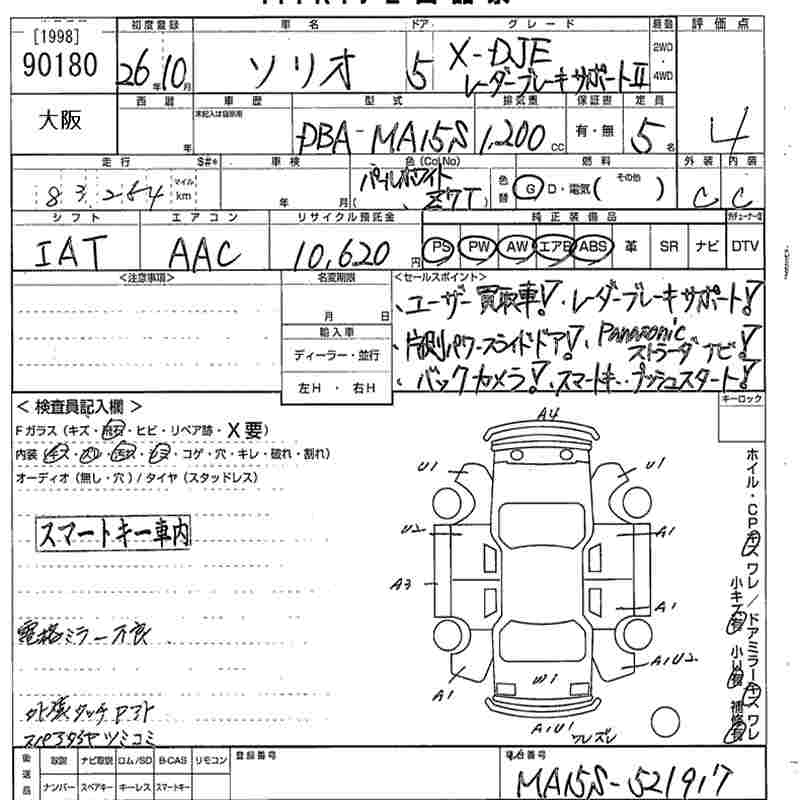 [1998]
90180
大阪
初度登録 車名 ドア グレード 駆動 評価点
26年10月 ソリオ 5 X-DJE
レーダーブレーキサポートII
2WD
4WD
西暦 車歴 型式 排気量 保証書 定員
未記入は自家用
年 DBA-MA15S 1,200cc 有・無 5名
4
走行 S#* 車検 色(ColNo) 燃料 外装 内装
83,284 マイル km 年 月 パールホワイト Z7T 色替 G D・電気( その他 ) C C
シフト エアコン リサイクル預託金 純正装備品
IAT AAC 10,620円 PS PW AW エアB ABS 革 SR ナビ DTV
<注意事項> 名変期限 <セールスポイント>
月 日
輸入車
ディーラー・並行
左H・右H
、ユーザー買取車!・レーダーブレーキサポート!
片側パワースライドドア!、Panasonic ストラーダナビ!
、バックカメラ!、スマートキー・プッシュスタート!
キーロック
<検査員記入欄>
Fガラス(キズ・飛石・ヒビ・リペア跡・X要)
内装(キズ・スレ・汚れ・シミ・コゲ・穴・キレ・破れ・割れ)
オーディオ(無し・穴)/タイヤ(スタッドレス)
スマートキー車内
電格ミラー不良
A4
U1 U1
U2 A1
A3
A1
A1 W1 A1U2
A1U1
ワレズレ
ホイル・CPキズワレ/ドアミラーキズワレ
小キズ有 小U有 補修有
後送品 取説 ナビ取説 ロム/SD B-CAS リモコン
ナンバー スペアキー キーレス スマートキー
登録番号
車台番号
MA15S-521917